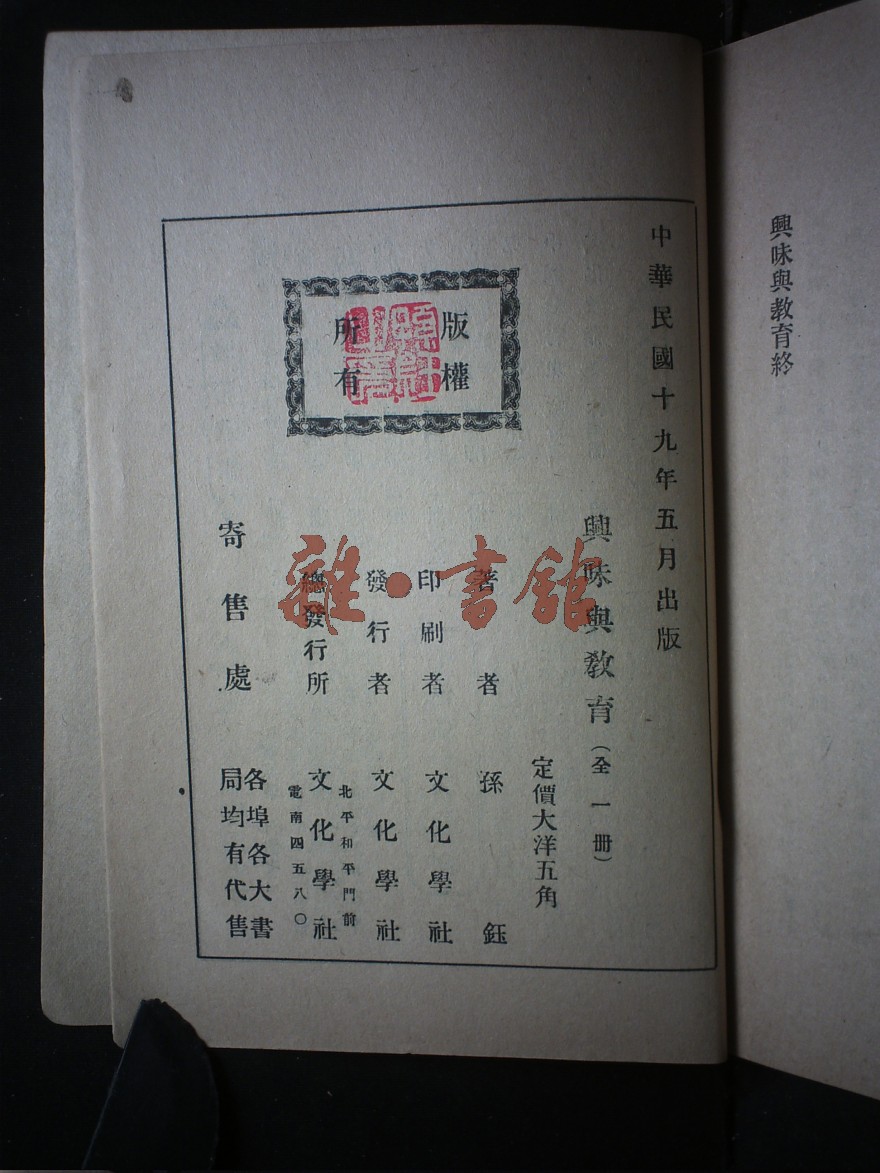 興味與教育終
中華民國十九年五月出版
版權
所有
興味與教育(全一册)
定價大洋五角
著者 孫鈺
印刷者 文化學社
發行者 文化學社
北平和平門前
總發行所 文化學社
電南四五八〇
寄售處 各埠各大書
局均有代售
雜·書館